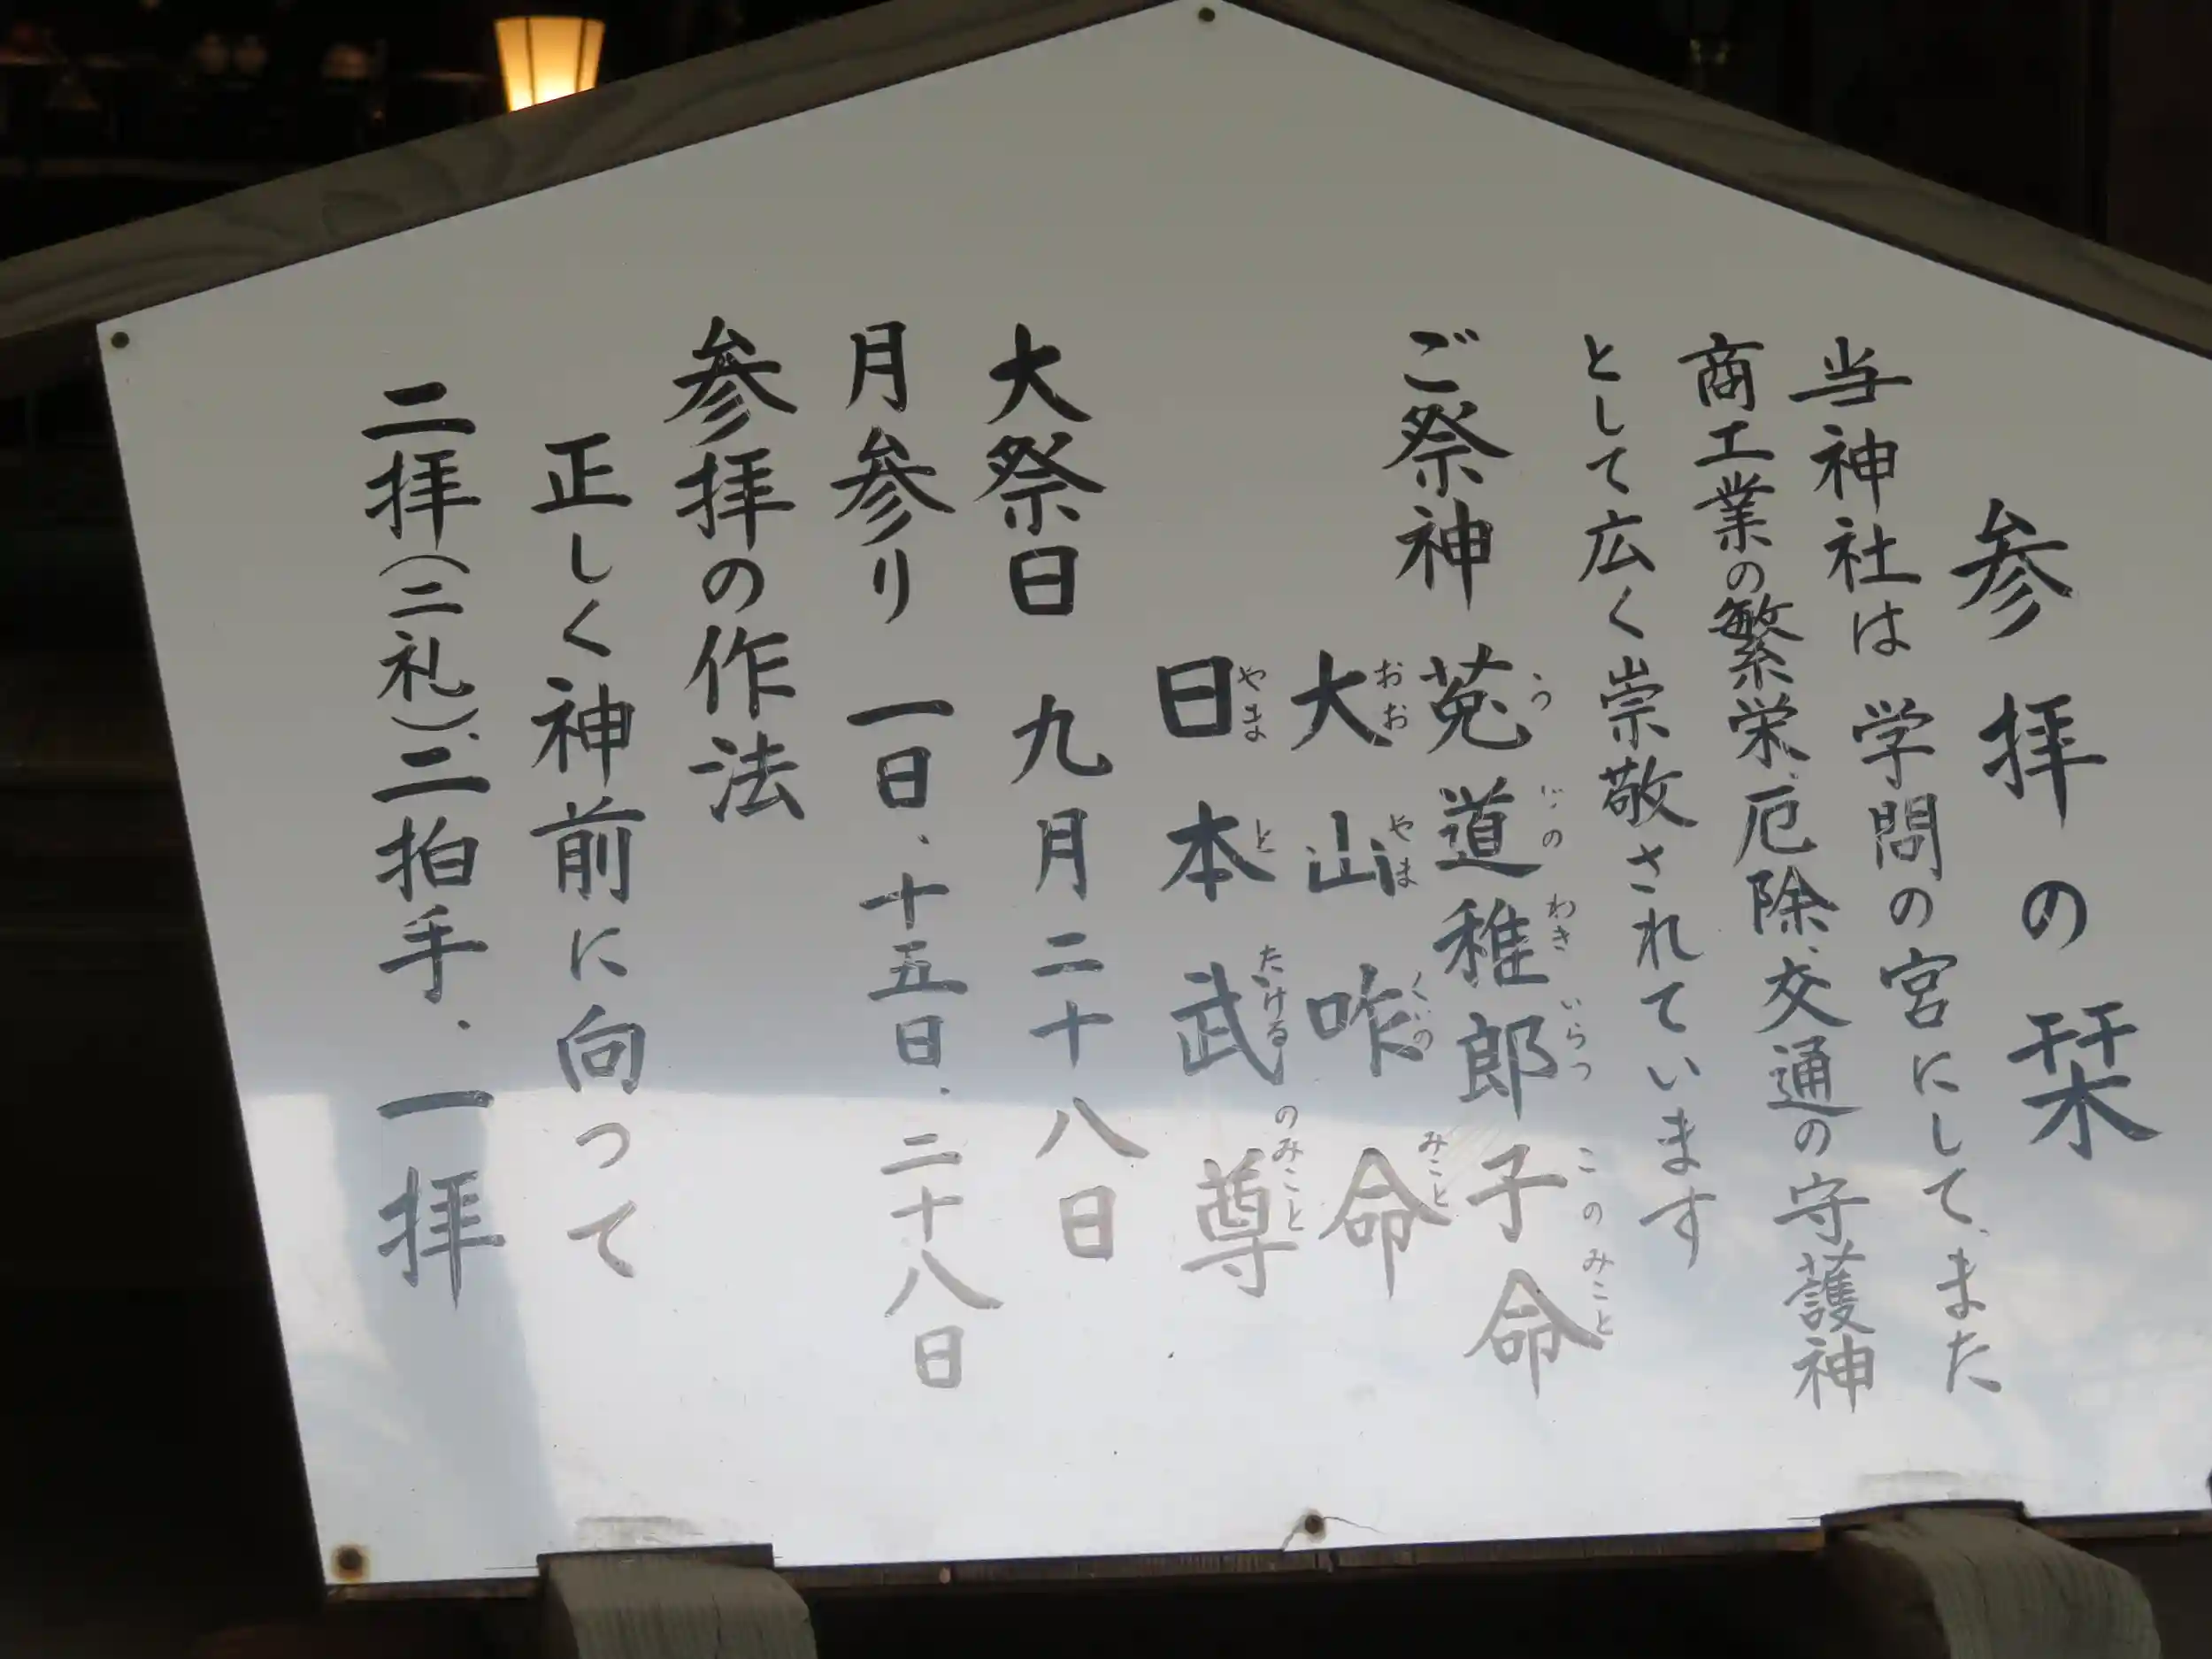 参拝の栞
当神社は学問の宮にして、また
商工業の繁栄、厄除、交通の守護神
として広く崇敬されています
ご祭神 菟道稚郎子命
うじのわきいらつこのみこと
大山咋命
おおやまくいのみこと
日本武尊
やまとたけるのみこと
大祭日 九月二十八日
月参り 一日、十五日、二十八日
参拝の作法
正しく神前に向つて
二拝(二礼)、二拍手、一拝